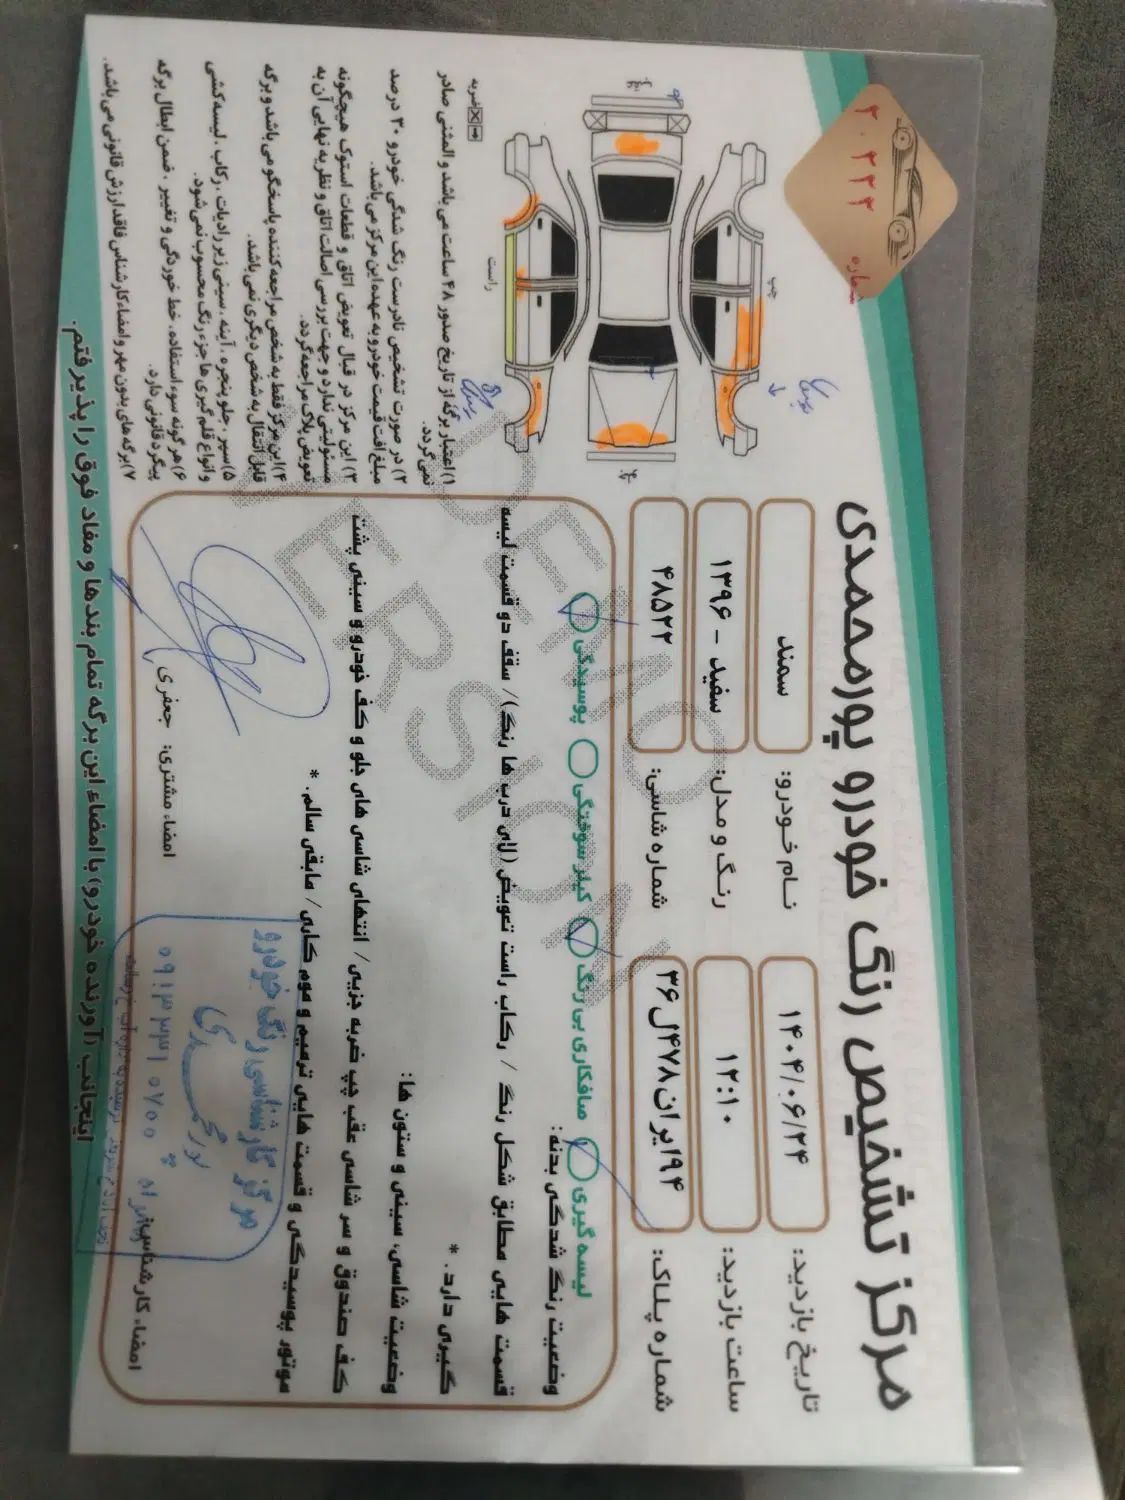 مرکز تشخیص رنگ خودرو پورمحمدی
شماره
۳۰۲۲۲
تاریخ بازدید: ۱۴۰۴/۰۶/۲۴
نام خودرو: سمند
ساعت بازدید: ۱۲:۱۰
رنگ و مدل: سفید - ۱۳۹۶
شماره پلاک: ۹۴ایران۴۷۸ل۳۶
شماره شاسی: ۴۸۵۲۲
چپ
راست
ضربه
لیسه گیری
صافکاری بی رنگ
گیلر سوختگی
پوسیدگی
وضعیت رنگ شدگی بدنه:
قسمت هایی مطابق شکل رنگ / رکاب راست تعویض (لای درب ها رنگ)/ سقف دو قسمت لیسه
گیری دارد. *
وضعیت شاسی، سینی و ستون ها:
کف صندوق و سر شاسی عقب چپ ضربه جزیی/ انتهای شاسی های جلو و کف خودرو و سینی پشت
موتور پوسیدگی و قسمت هایی ترمیم و موم کاری/ مابقی سالم. *
امضاء کارشناس:
امضاء مشتری: جعفری
مرکز کارشناسی رنگ خودرو
پورمحمدی
۰۹۱۳۳۳۱۰۷۰۰
۱)اعتبار برگه از تاریخ صدور ۴۸ ساعت می باشد و المثنی صادر
نمی گردد.
۲) در صورت تشخیص نادرست رنگ شدگی خودرو ۳۰ درصد
مبلغ افت قیمت خودرو به عهده این مرکز می باشد.
۳) این مرکز در قبال تعویض اتاق و قطعات استوک هیچگونه
مسئولیتی ندارد و جهت بررسی اصالت اتاق و نظریه نهایی آن به
تعویض پلاک مراجعه گردد.
۴)این مرکز فقط به شخص مراجعه کننده پاسخگو می باشد و برگه
قابل انتقال به شخص دیگری نمی باشد.
۵)سپر، جلو پنجره، آینه، سینی زیر رادیات، رکاب، لیسه کشی
و انواع قلم گیری ها جزء رنگ محسوب نمی شود.
۶)هر گونه سوء استفاده، خط خوردگی و تغییر، ضمن ابطال برگه
پیگرد قانونی دارد.
۷)برگه های بدون مهر و امضاء کارشناس فاقد ارزش قانونی می باشد.
اینجانب (آورنده خودرو) با امضاء این برگه تمام بندها و مفاد فوق را پذیرفتم.
DEMO
VERSION